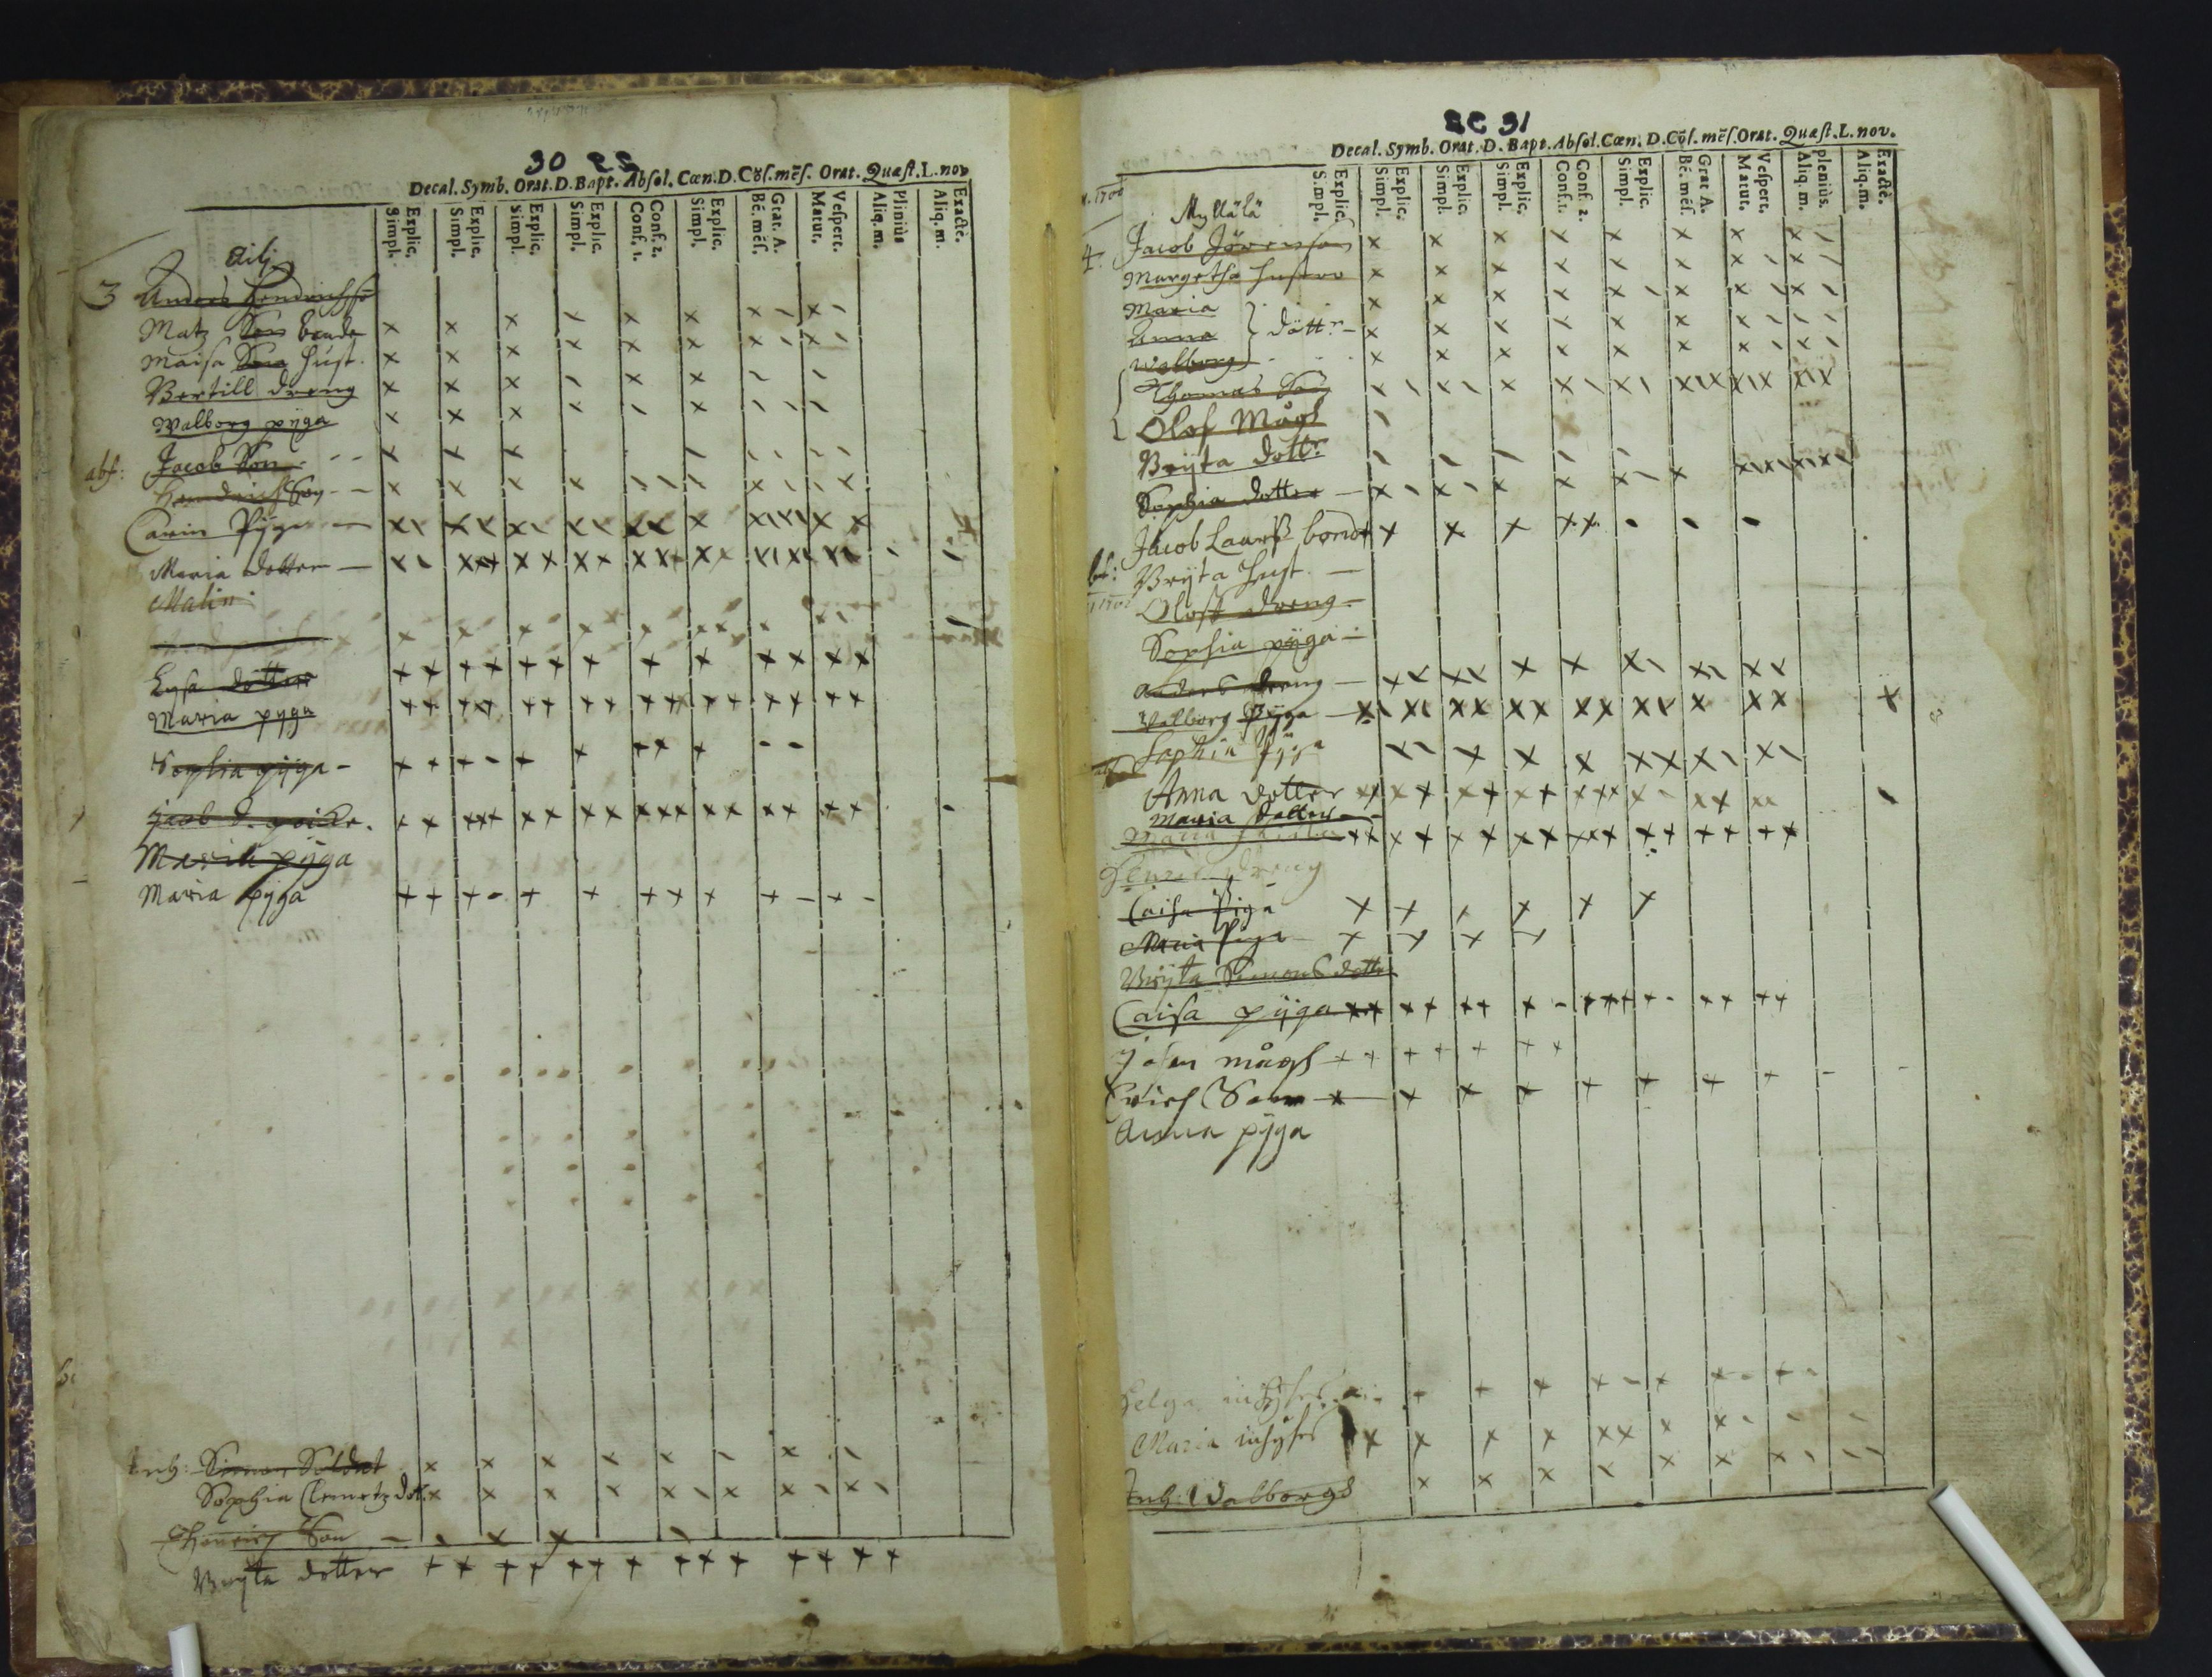 30
Decal. Symb. Orat. D. Bapt. Absol. Cœn. D. Cõſ. mẽſ. Orat. Quæſt. L. nov
Explic. Simpl. Explic. Simpl. Explic. Simpl. Explic. Simpl. Conf. 2. Conf. 1. Explic. Simpl. Grat. A. Bé. mẽſ. Veſpert. Matut. Plinius Aliq. m. Exactè. Aliq. m.
3 Anders Hendrichsso
Matz Son bonde
Maisa Son Hust.
Bertill dreng
Walborg pÿga
abs: Jacob Son
Hendrich Son
Carin Pÿga
Maria dotter
Malin
Lysa dotter
Maria pyga
Sophia pÿga
Jacob d. poicke.
Maria pÿga
Maria pÿga
Inh: Simon Soldat
Sophia Clemetz dot.
Henrich Son
Brÿta dotter
31
Decal. Symb. Orat. D. Bapt. Abſol. Cœn. D. Cõſ. mẽſ. Orat. Quæſt. L. nov.
Explic. Simpl. Explic. Simpl. Explic. Simpl. Explic. Simpl. Conf. 2. Conf. 1. Explic. Simpl. Grat A. Bé. mẽſ. Veſpert. Matut. pleniùs. Aliq. m. Exactè. Aliq. m.
Myllälä
4. Jacob Jörensson
Margetha hustro
Maria
Anna } dött:r
Walborg
Thomas Son
Olof Mågh
Brÿta dott:r
Sophia dotter
Jacob Laurß bonde
Brÿta Hust.
Oloff dreng
Sophia pÿga
Anders dreng
Walborg Pÿga
Sophia Pÿga
Anna dotter
Maria dotter
Maria
Henric dreng
Caisa Piga
Maria Piga
Brÿta Simons dotter
Caisa pÿga
Johan mågh
Erich Son
Anna pÿga
Helga inhÿses
Maria inhÿses
Inh: Walborg